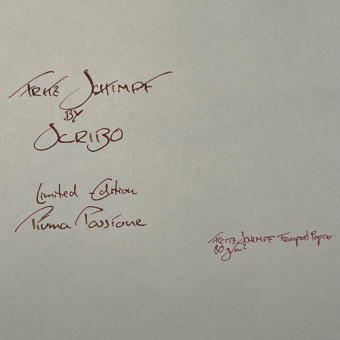 FRITZ SCHIMPF
BY
SCRIBO
Limited Edition
Piuma Passione
FRITZ SCHIMPF Papier
80 g/m²